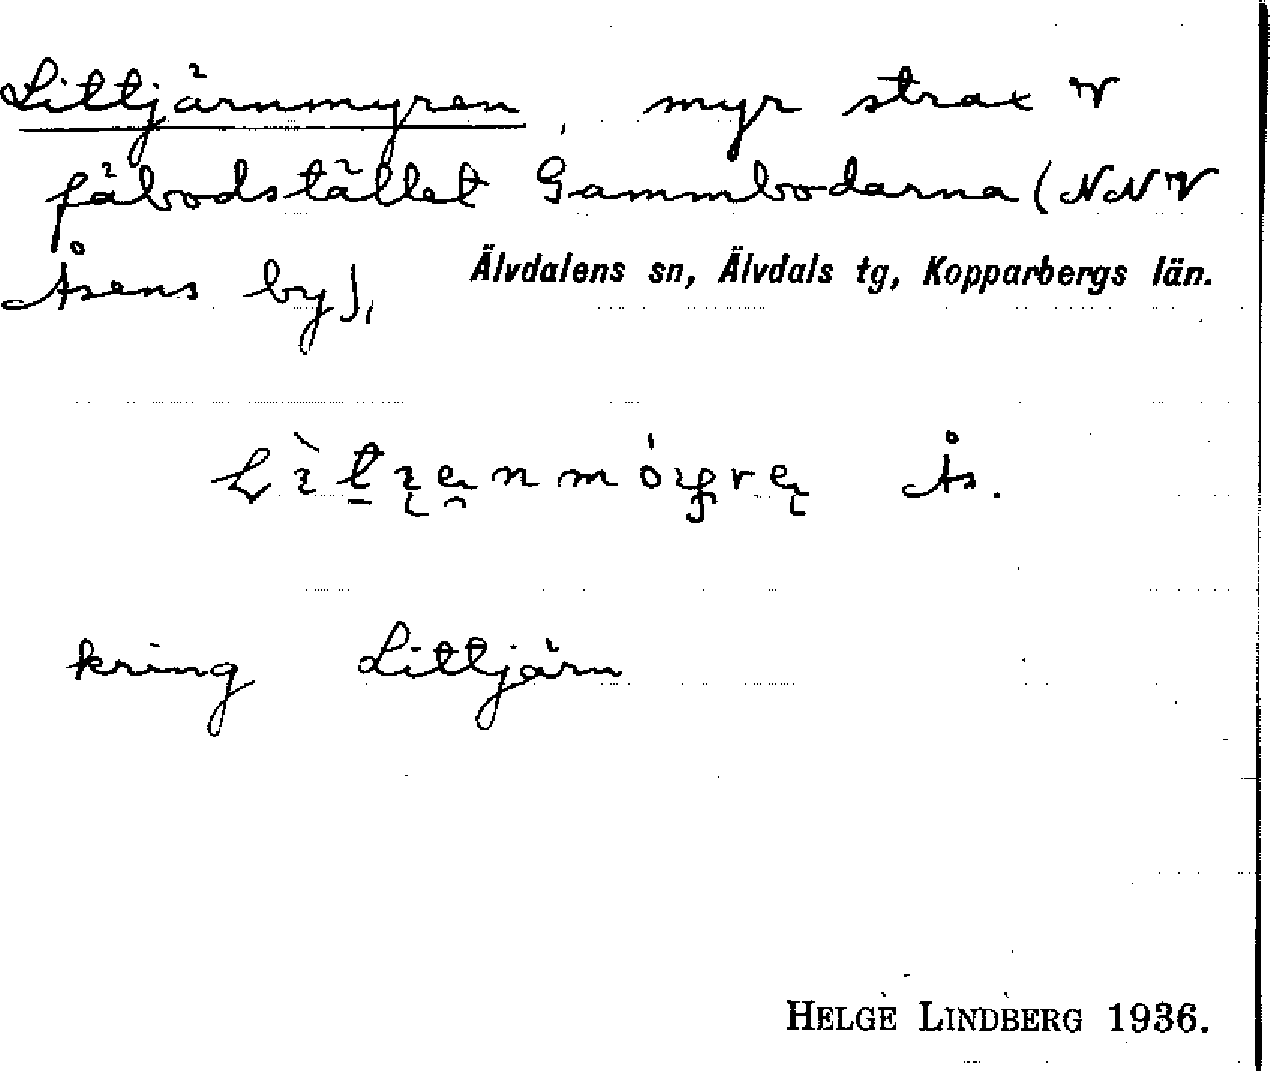 Littjärnmyren, myr strax V
fäbodstället Gammbodarna (NNV
Åsens by),
Älvdalens sn, Älvdals tg, Kopparbergs län.
Ås.
kring Littjärn
HELGE LINDBERG 1936.